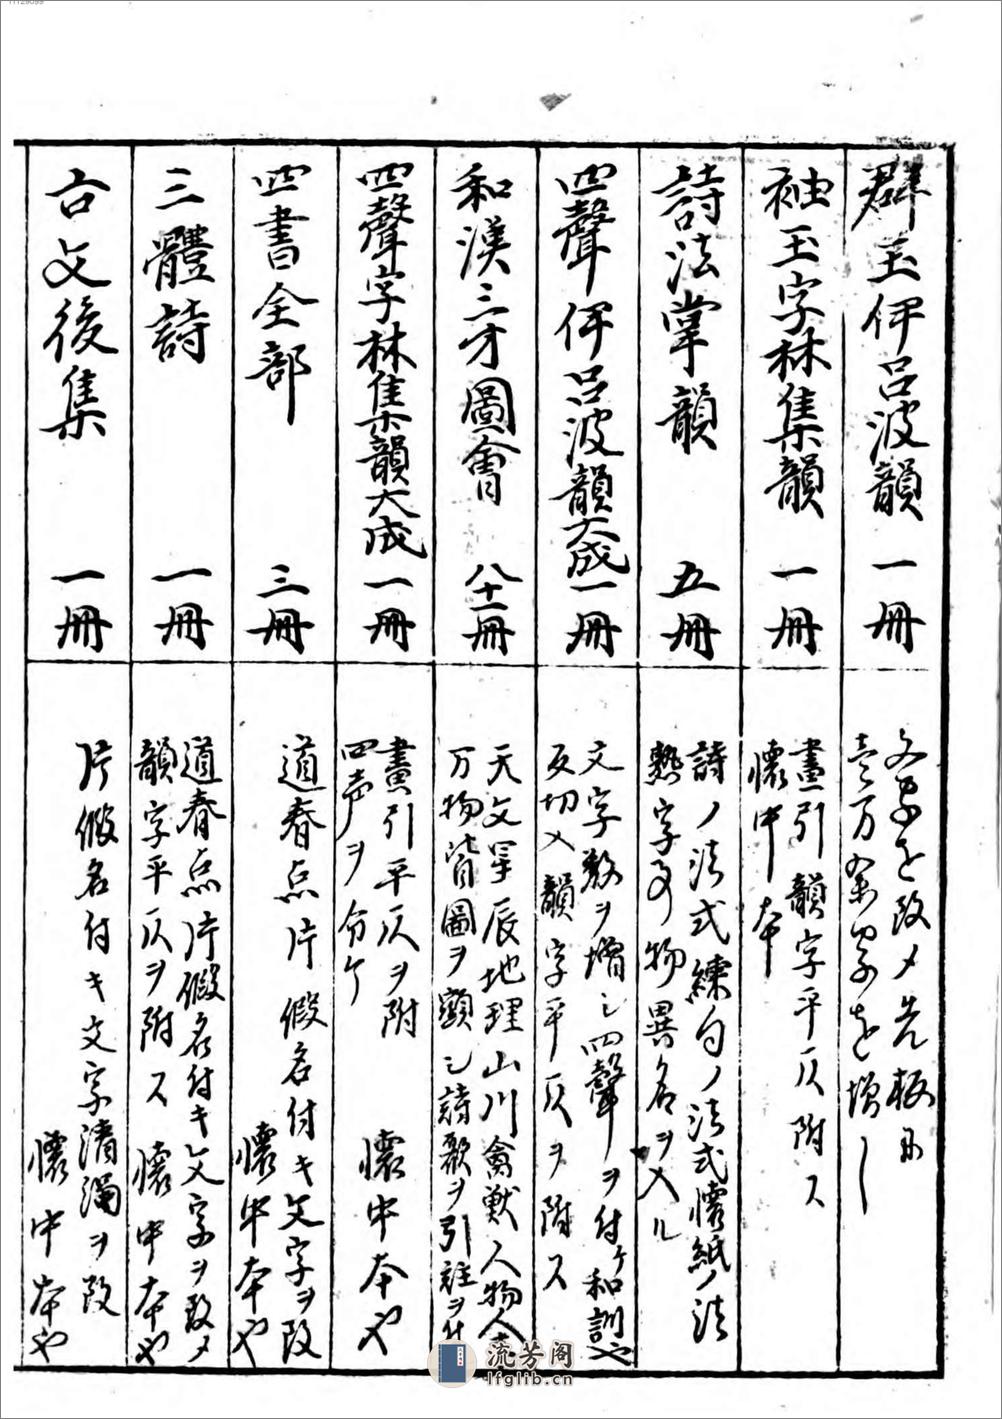 群玉伊呂波韻 一冊
文字を改メ先板ニ
壱万余字を増し
袖玉字林集韻 一冊
畫引韻字平仄附ス
懐中本
詩法掌韻 五冊
詩ノ法式練句ノ法式懐紙ノ法
熟字事物異名ヲ入ル
四聲伊呂波韻大成 一冊
文字数ヲ増シ四聲ヲ付ケ和訓也
反切入韻字平仄ヲ附ス
和漢三才圖會 八十一冊
天文星辰地理山川禽獣人物人
万物皆圖ヲ顕シ詩歌ヲ引註ヲ
四聲字林集韻大成 一冊
畫引平仄ヲ附
四声ヲ分ケ 懐中本也
四書全部 三冊
道春点片假名付キ文字ヲ改
懐中本也
三體詩 一冊
道春点片假名付キ文字ヲ改メ
韻字平仄ヲ附ス 懐中本也
古文後集 一冊
片假名付キ文字清濁ヲ改
懐中本也
流芳阁
lfglib.cn